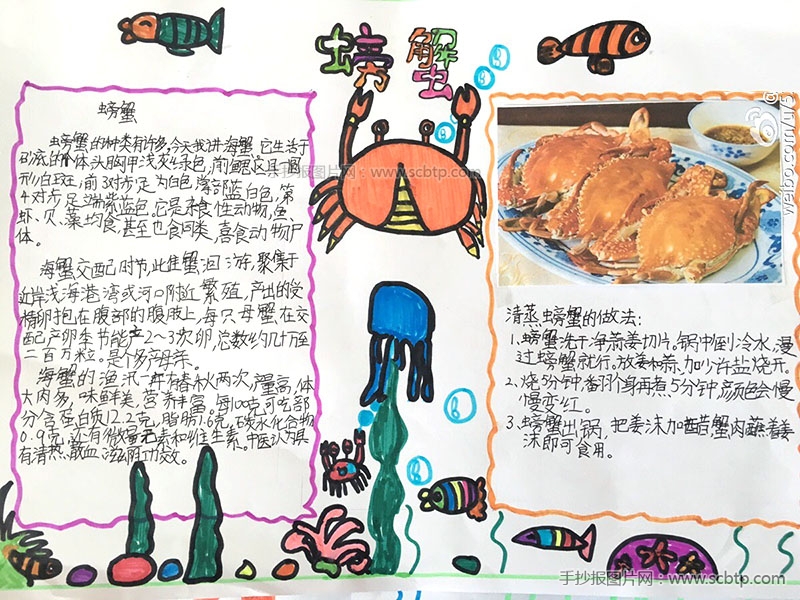 螃蟹
螃蟹
螃蟹的种类有许多,今天我讲海蟹 它生活于
的 体头胸甲浅灰绿色,前
白 ,前3对步足为白色 蓝白色,第
4对步足 紫蓝色。它是杂食性动物,鱼
虾、贝、藻均食,甚至也食同类,喜食动物尸
体。
海蟹交配时节,此 蟹洄游,聚集于
近岸浅海港湾或河口附近繁殖,产出的受
精卵抱在腹部的腹肢上,每只母蟹在交
配产卵季节能产2~3次卵,总数约几十万至
二百万粒。是个多产母亲。
海蟹的渔汛一年有春秋两次,产量高,体
大肉多,味鲜美,营养丰富。每100克可吃部
分含蛋白质12.2克,脂肪1.6克,碳水化合物
0.9克,还有微 元素和维生素。中医认为具
有清热、散血、滋阴功效。
清蒸螃蟹的做法:
1、螃蟹洗干净,葱姜切片。锅中倒冷水,漫
过螃蟹就行。放姜和蒜,加少许盐烧开。
2、烧5分钟,翻个身再煮5分钟,颜色会慢
慢变红。
3、螃蟹出锅,把姜沫加醋,蟹肉蘸着姜
沫即可食用。
手抄报图片网:www.scbtp.com
weibo.com/u/5
手抄报图片网:www.scbtp.com